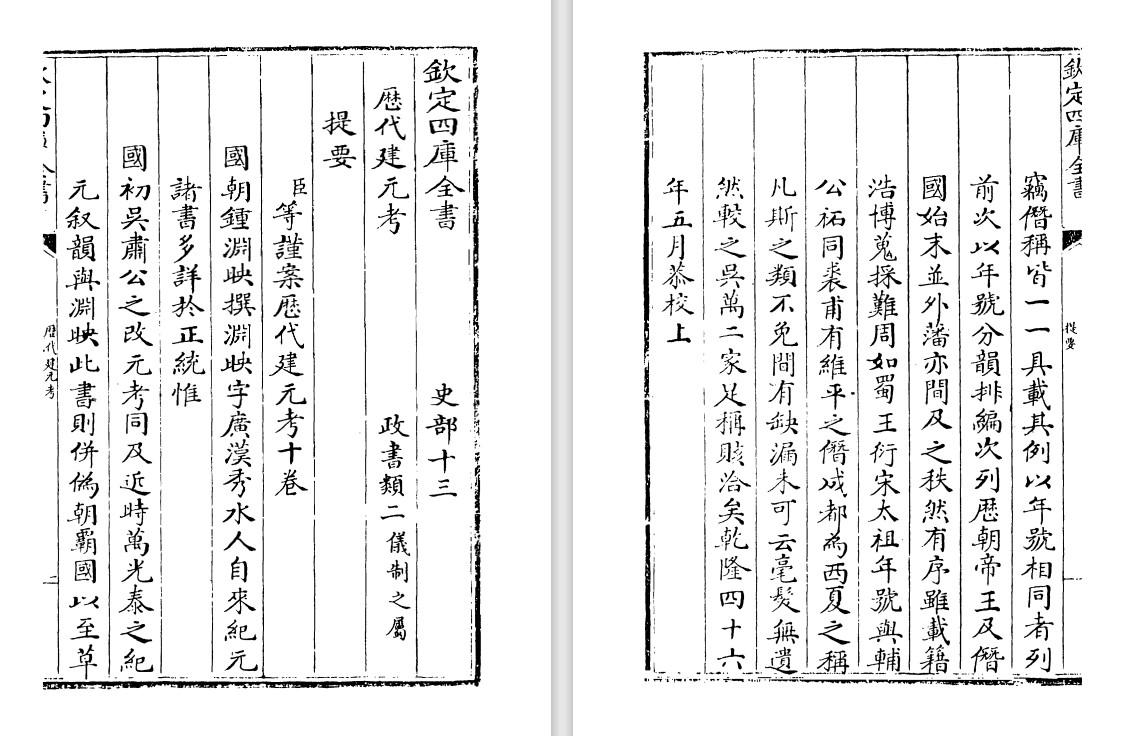 欽定四庫全書 史部十三
厯代建元考 政書類二儀制之屬
提要
臣等謹案厯代建元考十卷
國朝鍾淵映撰淵映字廣漢秀水人自來紀元
諸書多詳於正統惟
國初吳肅公之改元考同及近時萬光泰之紀
元叙韻與淵映此書則併偽朝霸國以至草
厯代建元考
欽定四庫全書
提要
竊僭稱皆一一具載其例以年號相同者列
前次以年號分韻排編次列厯朝帝王及僭
國始末並外藩亦間及之秩然有序雖載籍
浩博蒐採難周如蜀王衍宋太祖年號與輔
公祏同裘甫有維平之僭成都為西夏之稱
凡斯之類不免間有缺漏未可云毫髮無遺
然較之吳萬二家足稱賅洽矣乾隆四十六
年五月恭校上